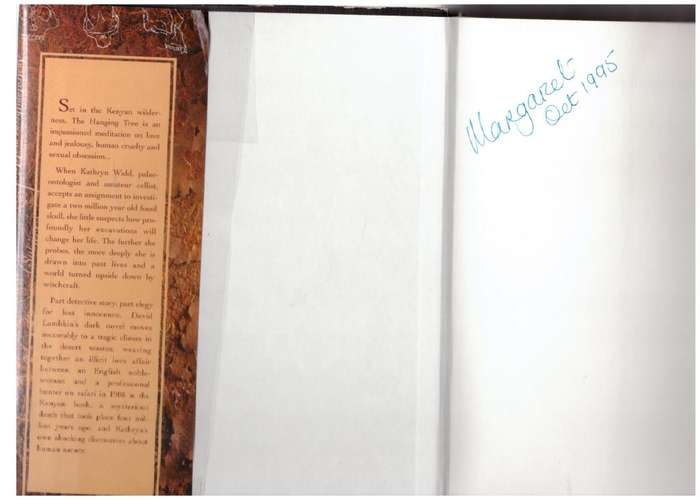 Set in the Kenyan wilder-
ness, The Hanging Tree is an
impassioned meditation on love
and jealousy, human cruelty and
sexual obsession...
When Kathryn Widd, palae-
ontologist and amateur cellist,
accepts an assignment to investi-
gate a two million year old fossil
skull, she little suspects how pro-
foundly her excavations will
change her life. The further she
probes, the more deeply she is
drawn into past lives and a
world turned upside down by
witchcraft.
Part detective story, part elegy
for lost innocence, David
Lambkin's dark novel moves
inexorably to a tragic climax in
the desert wastes, weaving
together an illicit love affair
between an English noble-
woman and a professional
hunter on safari in 1908 in the
Kenyan bush, a mysterious
death that took place four mil-
lion years ago, and Kathryn's
own shocking discoveries about
human nature.
Margaret
Oct 1995